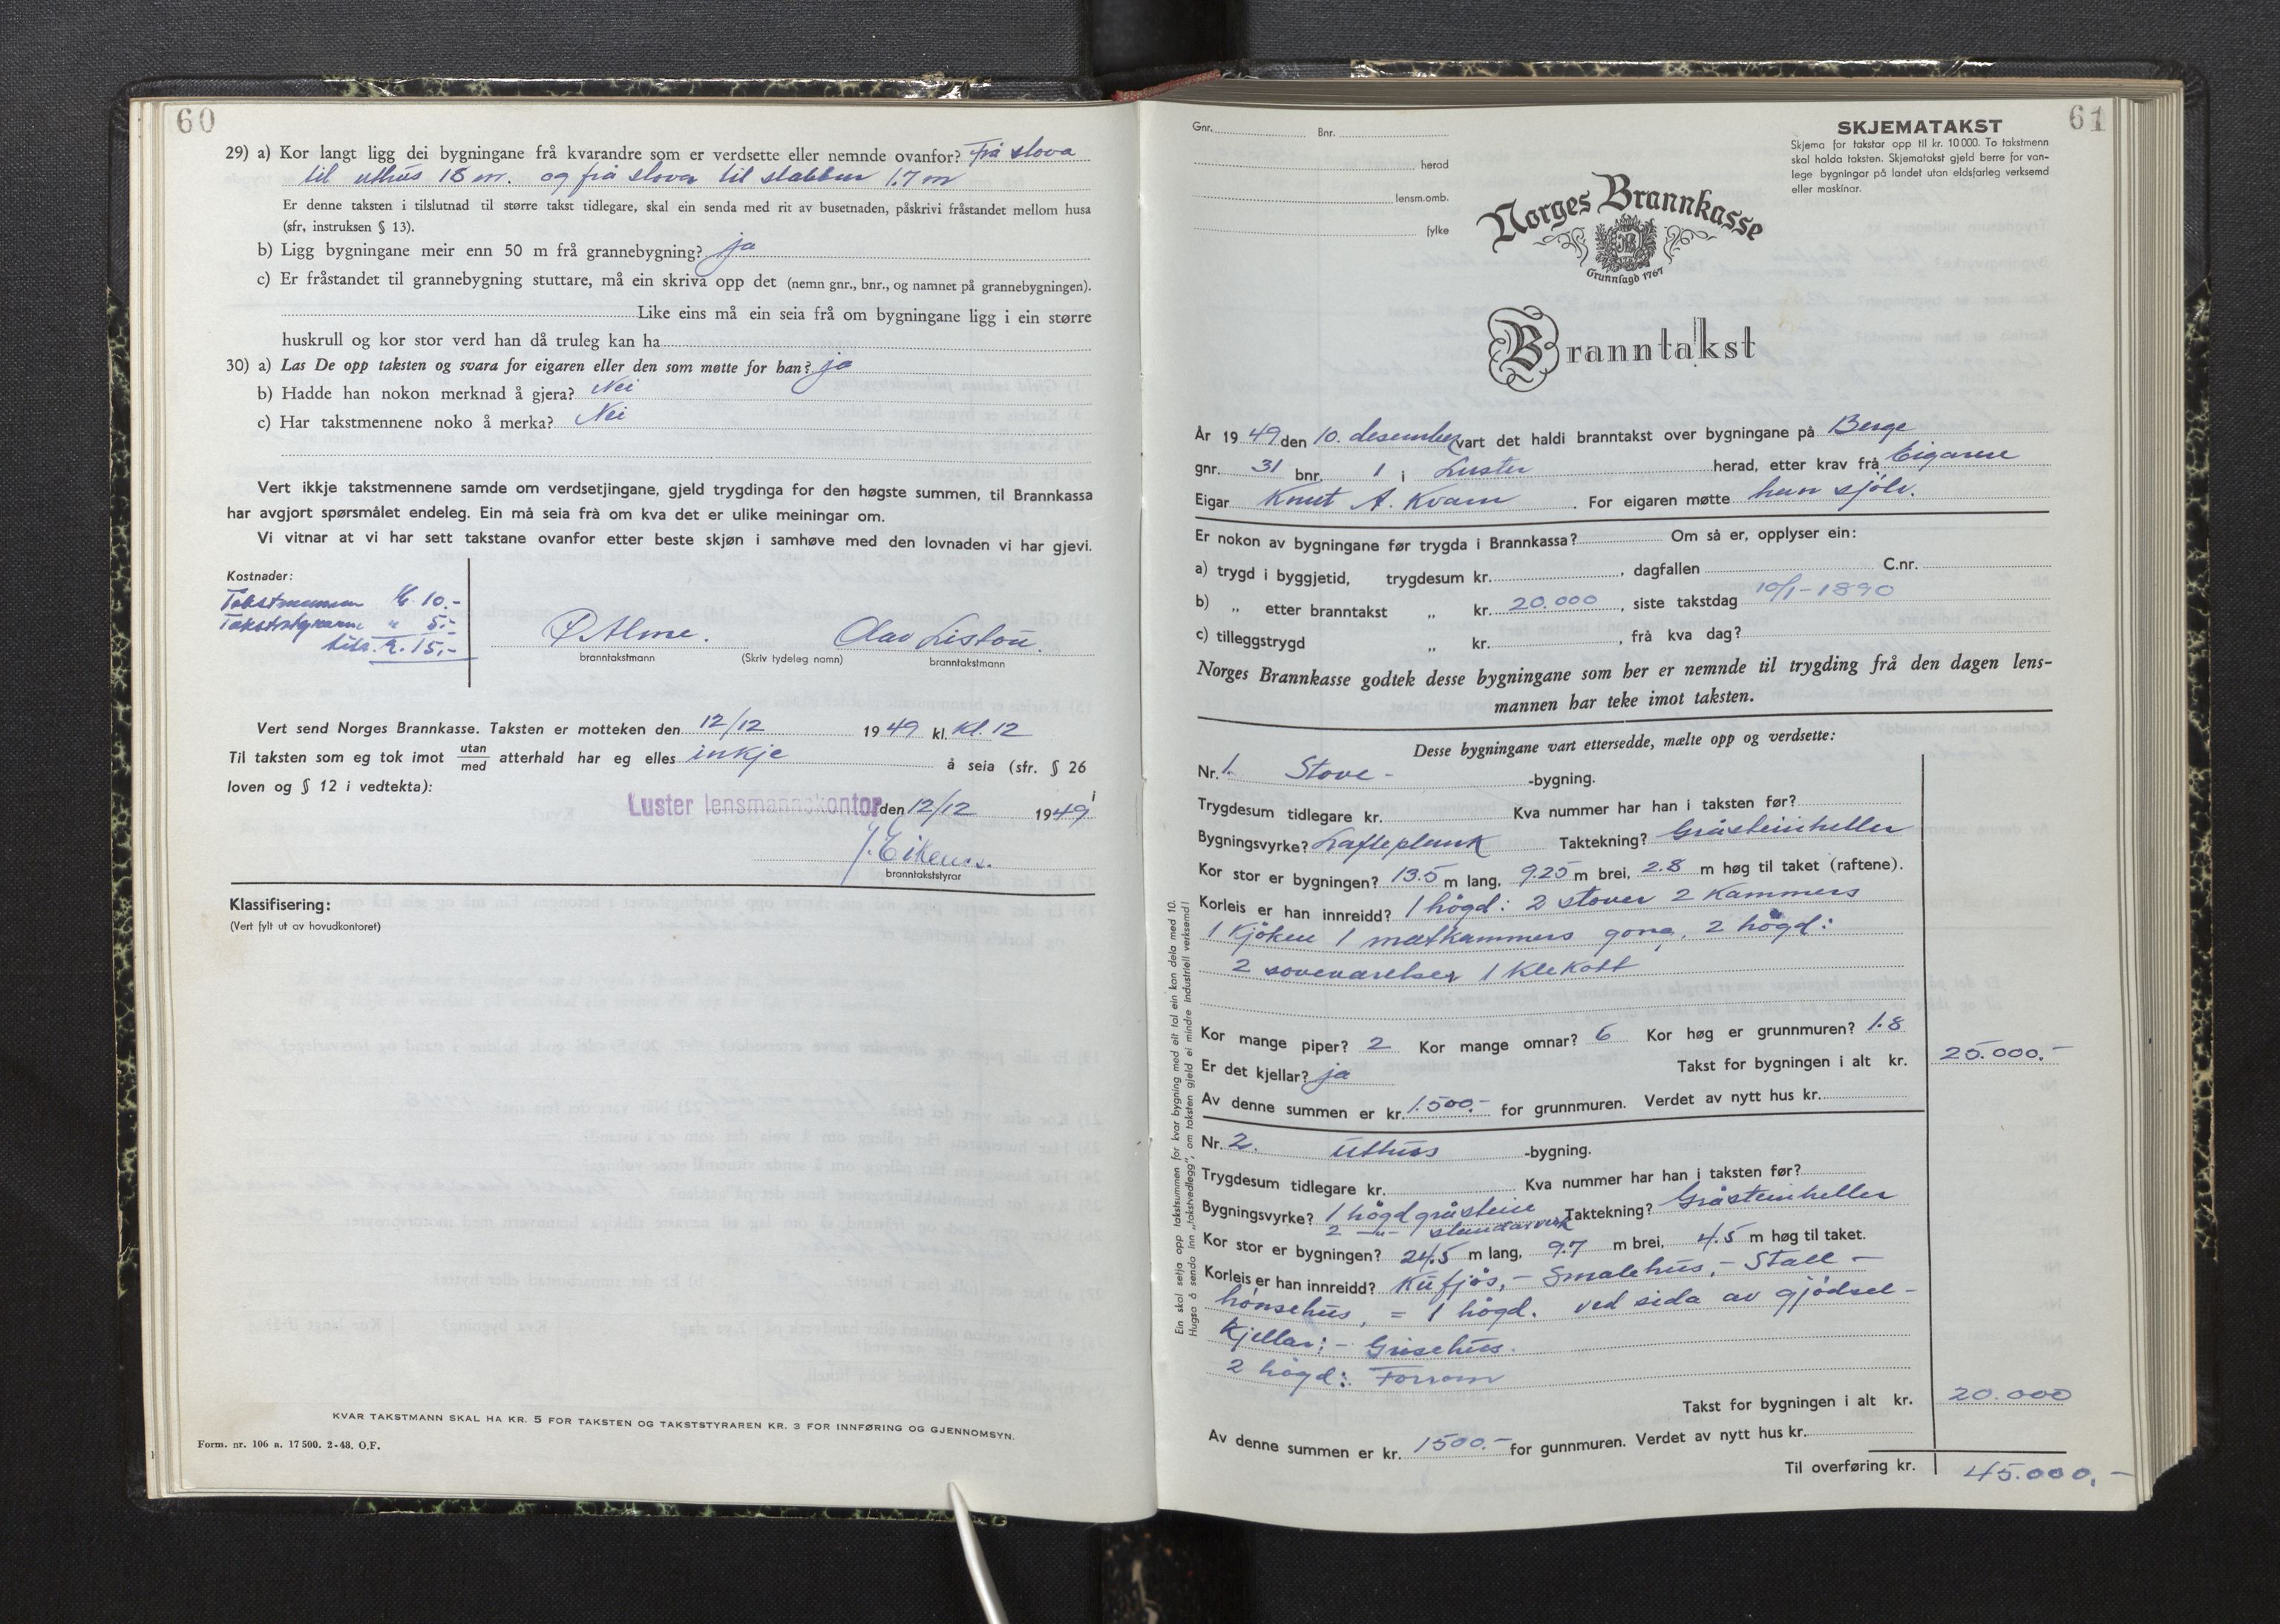 60
29) a) Kor langt ligg dei bygningane frå kvarandre som er verdsette eller nemnde ovanfor? Frå stova
til uthus 18 m. og frå stova til stabbur 1.7 m
Er denne taksten i tilslutnad til større takst tidlegare, skal ein senda med rit av busetnaden, påskrivi fråstandet mellom husa
(sfr, instruksen § 13).
b) Ligg bygningane meir enn 50 m frå grannebygning? ja
c) Er fråstandet til grannebygning stuttare, må ein skriva opp det (nemn gnr., bnr., og namnet på grannebygningen).
Like eins må ein seia frå om bygningane ligg i ein større
huskrull og kor stor verd han då truleg kan ha
30) a) Las De opp taksten og svara for eigaren eller den som møtte for han? ja
b) Hadde han nokon merknad å gjera? Nei
c) Har takstmennene noko å merka? Nei
Vert ikkje takstmennene samde om verdsetjingane, gjeld trygdinga for den høgste summen, til Brannkassa
har avgjort spørsmålet endeleg. Ein må seia frà om kva det er ulike meiningar om.
Vi vitnar at vi har sett takstane ovanfor etter beste skjøn i samhøve med den lovnaden vi har gjevi.
Kostnader:
Takstmennene kr. 10.-
Takststyraren " 5.-
kr. 15,-
P Alme. Olav Liston.
branntakstmann (Skriv tydeleg namn) branntakstmann
Vert send Norges Brannkasse. Taksten er motteken den 12/12 1949 kl. Kl. 12
Til taksten som eg tok imot utan/med atterhald har eg elles inkje å seia (sfr. § 26
loven og § 12 i vedtekta):
Luster lensmannskontor den 12/12 1949
J. Eikenes.
branntakststyrar
Klassifisering:
(Vert fylt ut av hovudkontoret)
KVAR TAKSTMANN SKAL HA KR. 5 FOR TAKSTEN OG TAKSTSTYRAREN KR. 3 FOR INNFØRING OG GJENNOMSYN.
Form. nr. 106 a. 17 500. 2-48. O.F.
61
Gnr. Bnr.
herad
lensm.omb.
fylke
SKJEMATAKST
Skjema for takstar opp til kr. 10 000. To takstmenn
skal halda taksten. Skjematakst gjeld berre for van-
lege bygningar på landet utan eldsfarleg verksemd
eller maskinar.
Norges Brannkasse
Grunnlagd 1767
Branntakst
År 1949 den 10. desember vart det haldi branntakst over bygningane på Berge
gnr. 31 bnr. 1 i Luster herad, etter krav frå Eigaren
Eigar Knut A. Kvam. For eigaren møtte han sjölv.
Er nokon av bygningane før trygda i Brannkassa? Om så er, opplyser ein:
a) trygd i byggjetid, trygdesum kr. , dagfallen C.nr.
b) „ etter branntakst „ kr. 20.000, siste takstdag 10/1-1890
c) tilleggstrygd „ kr. , frå kva dag?
Norges Brannkasse godtek desse bygningane som her er nemnde til trygding frå den dagen lens-
mannen har teke imot taksten.
Desse bygningane vart ettersedde, mælte opp og verdsette:
Nr. 1. Stove- -bygning.
Trygdesum tidlegare kr. Kva nummer har han i taksten før?
Bygningsvyrke? Lafteplank Taktekning? Gråsteinheller
Kor stor er bygningen? 13.5 m lang, 9.25 m brei, 2.8 m høg til taket (raftene).
Korleis er han innreidd? 1 högd: 2 stover 2 Kammers
1 Kjöken 1 matkammers gong, 2 högd:
2 soveværelser 1 Klekott
Kor mange piper? 2 Kor mange omnar? 6 Kor høg er grunnmuren? 1.8
Er det kjellar? ja Takst for bygningen i alt kr. 25.000.-
Av denne summen er kr. 1.500.- for grunnmuren. Verdet av nytt hus kr.
Nr. 2. Uthus -bygning.
Trygdesum tidlegare kr. Kva nummer har han i taksten før?
Bygningsvyrke? 1 högd gråstein Taktekning? Gråsteinheller
2 -"- standarverk
Kor stor er bygningen? 24.5 m lang, 9.7 m brei, 4.5 m høg til taket.
Korleis er han innreidd? Kufjös,- Smalehus,- Stall-
hönsehus, = 1 högd. ved sida av gjödsel-
Kjellar; - Grisehus.
2 högd: Forrom
Takst for bygningen i alt kr. 20.000
Av denne summen er kr. 1500.- for gunnmuren. Verdet av nytt hus kr.
Til overføring kr. 45.000.-
Ein skal setja opp takstsummen for kvar bygning med eit tal ein kan dela med 10.
Hugsa å senda inn „takstvedlegg", om taksten gjeld ei mindre industriell verksemd!